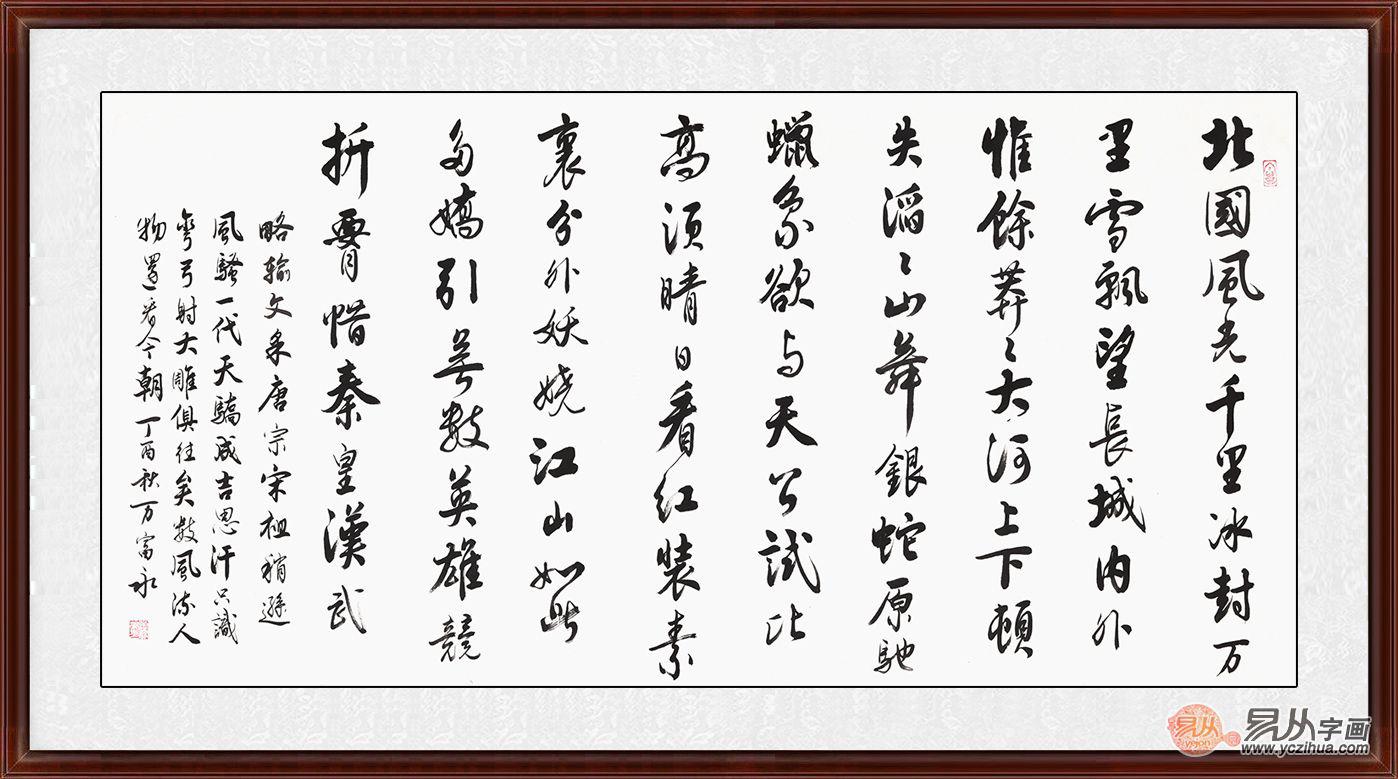 北國風光千里冰封万
里雪飄望長城内外
惟餘莽〻大河上下頓
失滔〻山舞銀蛇原馳
蠟象欲与天公試比
高須晴日看红装素
裹分外妖娆江山如此
多嬌引無數英雄競
折腰惜秦皇漢武
略输文采唐宗宋祖稍遜
風騷一代天驕成吉思汗只識
彎弓射大雕俱往矣數風流人
物還看今朝丁酉秋万富永
易从
易从字画
www.yczihua.com